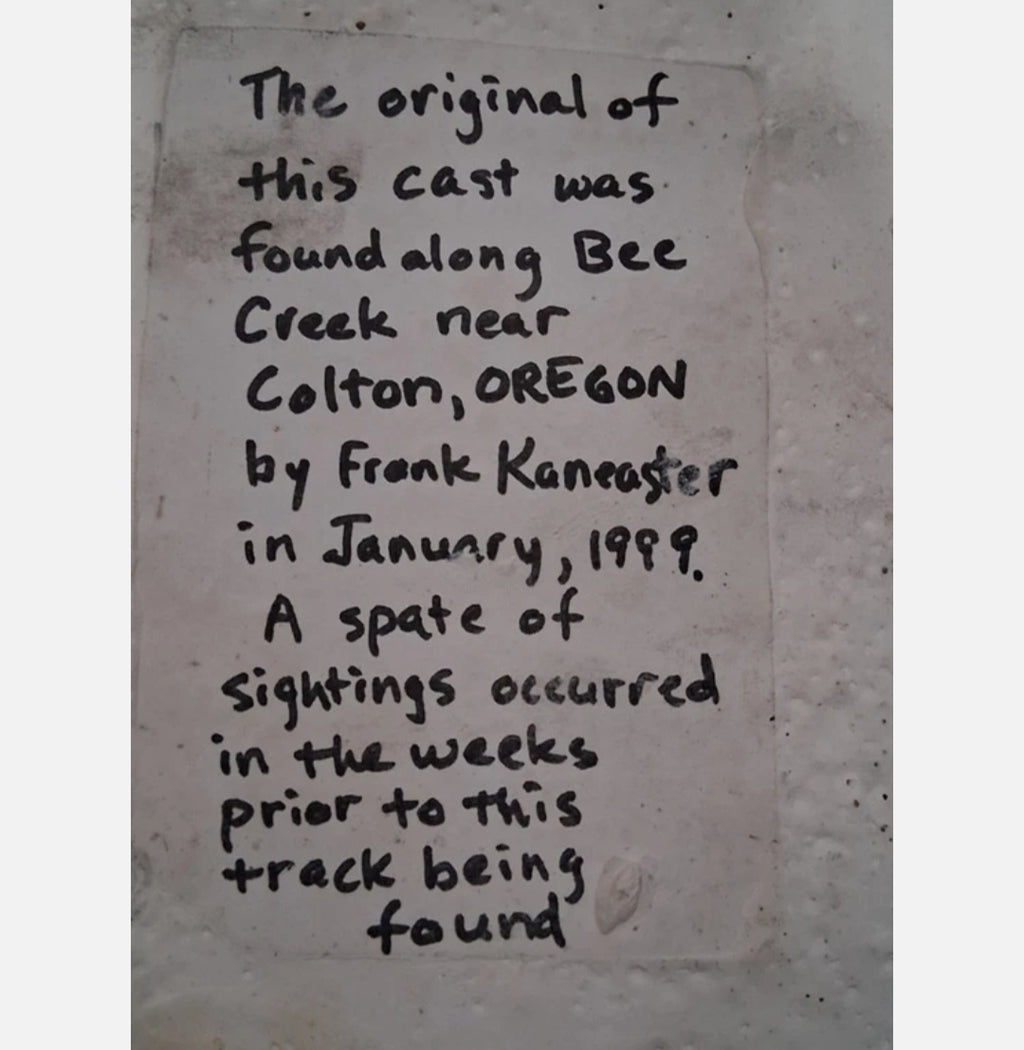 The original of
this cast was
found along Bee
Creek near
Colton, OREGON
by Frank Kaneaster
in January, 1999.
A spate of
sightings occurred
in the weeks
prior to this
track being
found